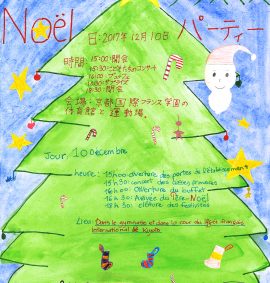 Noël パーティー
日:2017年12月10日
時間: 15:00 開会
15:30 こどもたちのコンサート
16:00 ブッフェ
18:30 閉会
会場:京都国際フランス学園の
体育館と運動場。
Jour: 10 Décembre
heure: 15h00 ouverture des portes de l'établissement
15h30 concert des classes primaires
16h00 Ouverture du buffet
16h30 Arrivée du Père Noël
18h30 clôture des festivités
Lieu: Dans le gymnase et dans la cour du lycée français
international de Kyoto